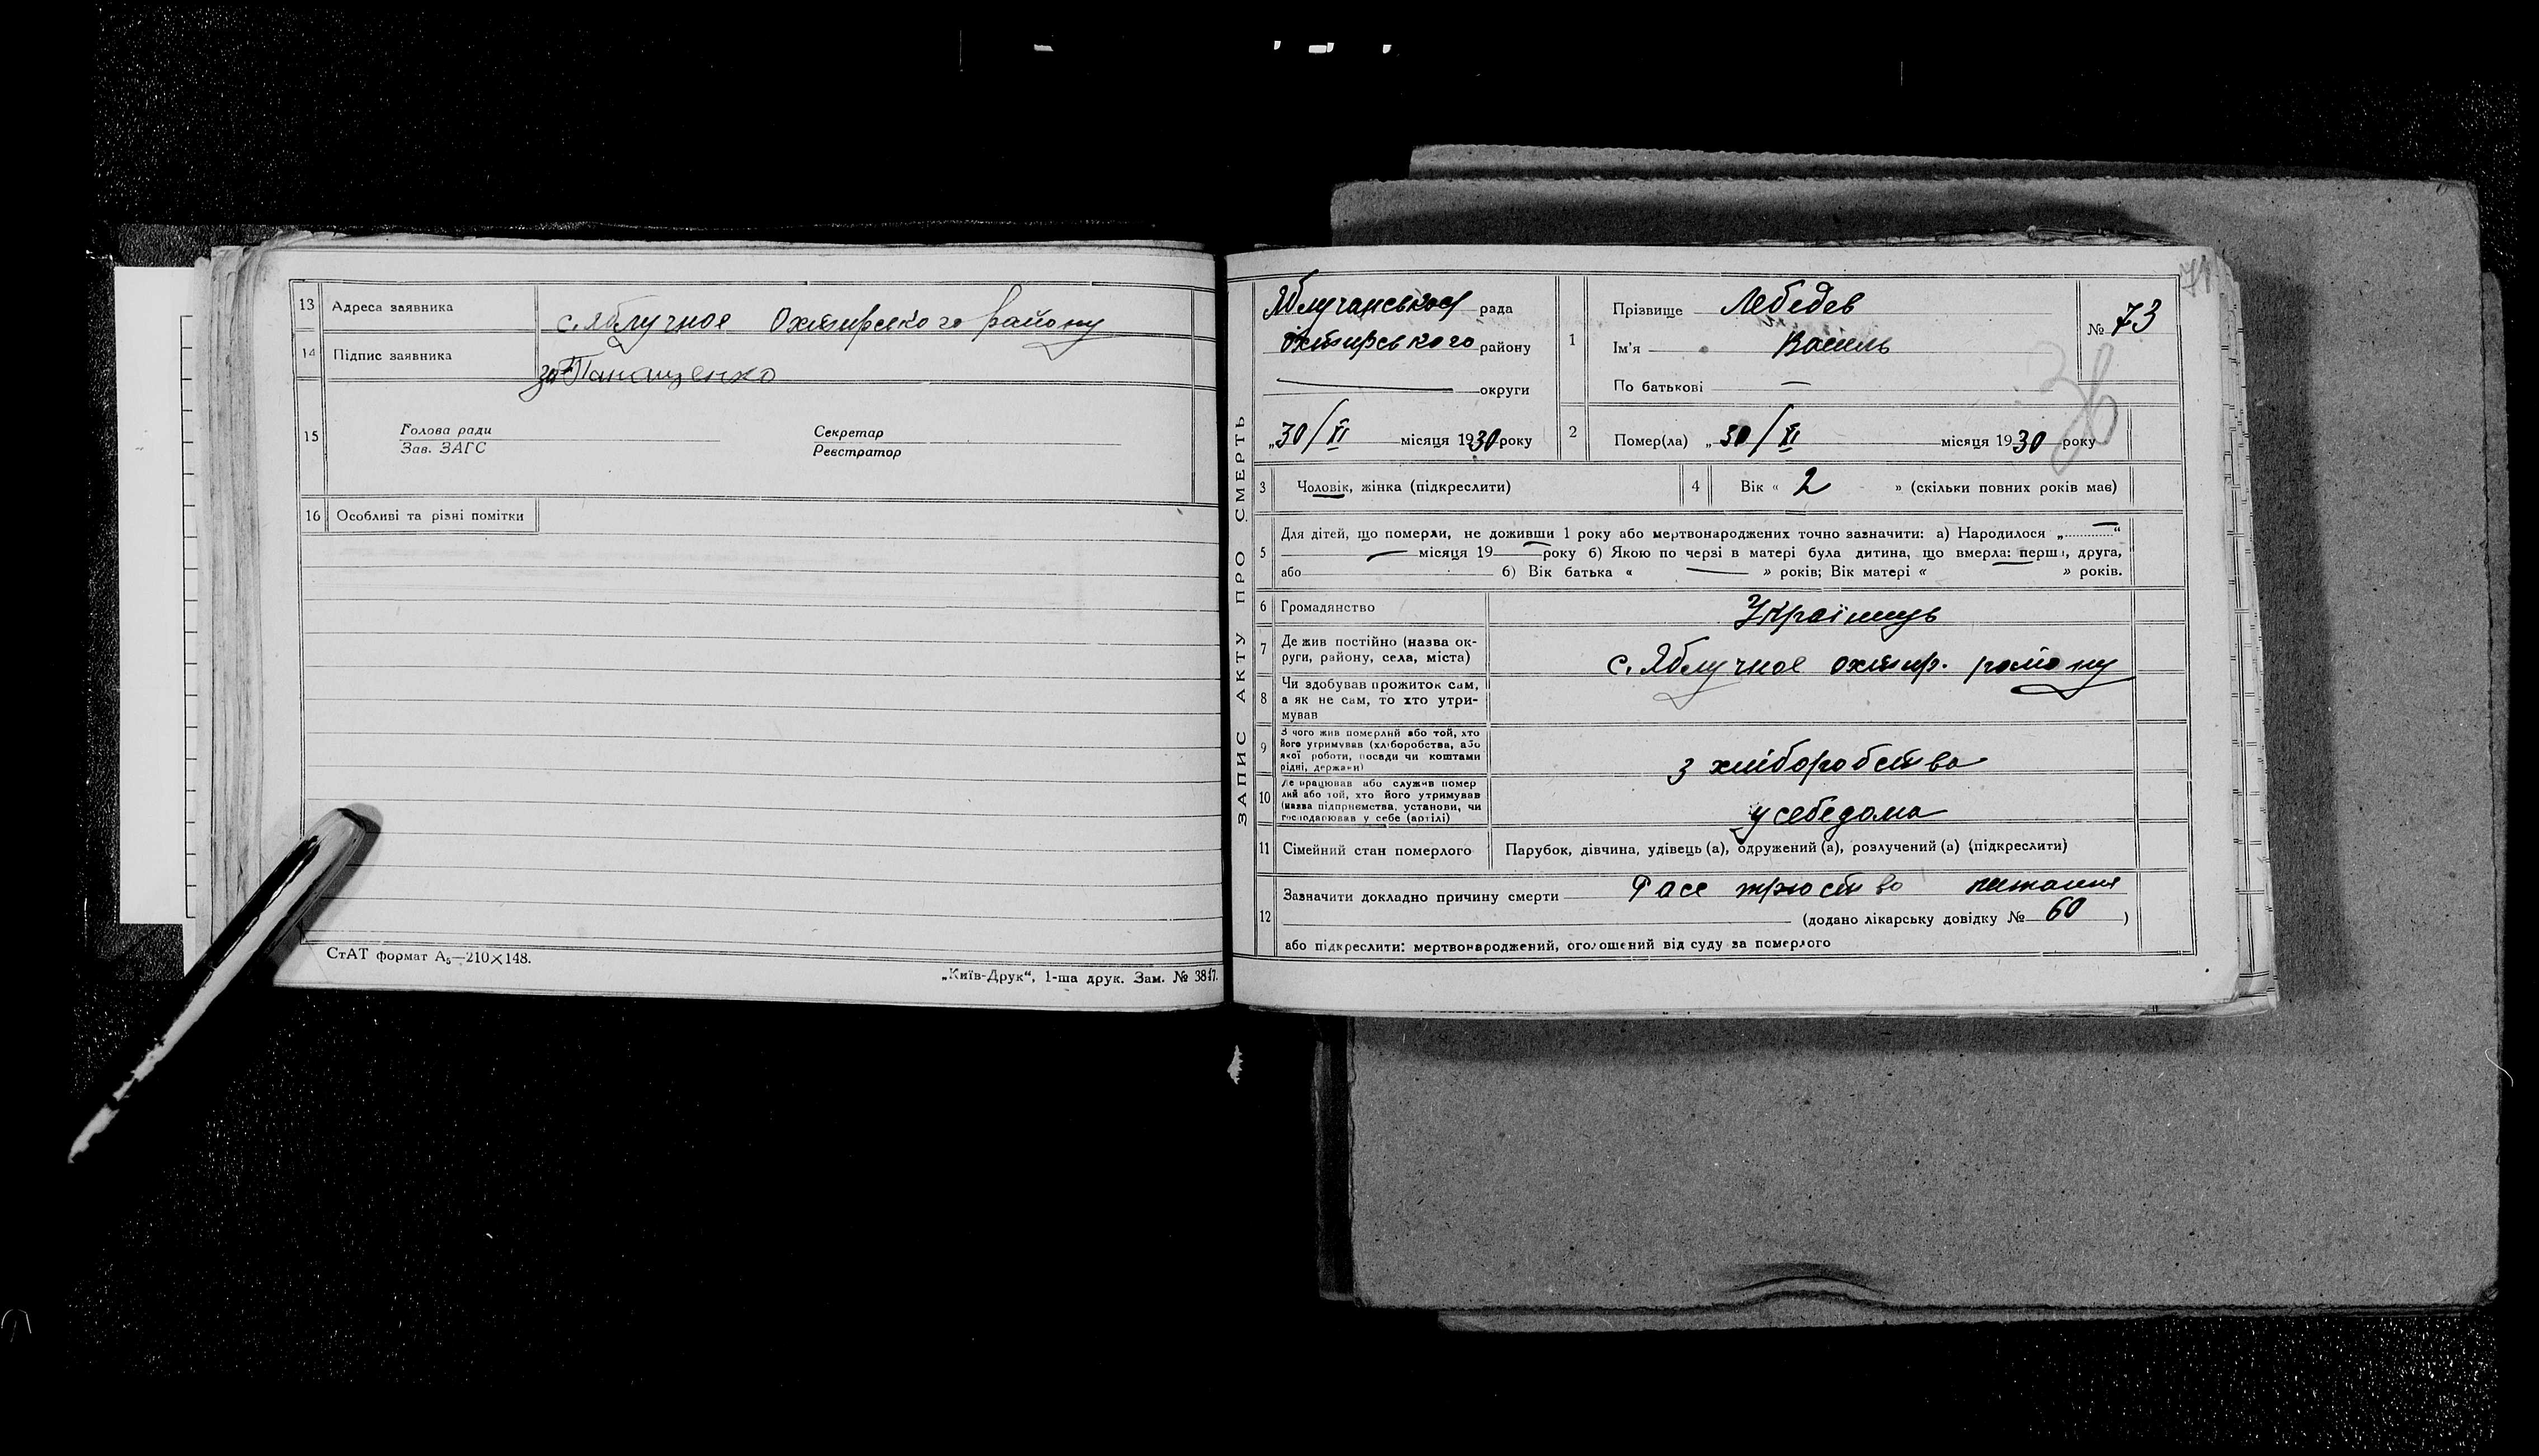 13 Адреса заявника с. Яблучное Охтирського району
14 Підпис заявника за Панащенко
15 Голова ради Секретар
Зав. ЗАГС Реєстратор
16 Особливі та різні помітки
СтАТ формат А₅—210×148.
„Київ-Друк“, 1-ша друк. Зам. № 3817.
ЗАПИС АКТУ ПРО СМЕРТЬ
71
Яблучанської рада
Охтирського району
округи
„30/XI місяця 1930 року
1 Прізвище Лебедев
Ім'я Василь
По батькові —
№ 73
2 Помер(ла) „30/XI місяця 1930 року
3 Чоловік, жінка (підкреслити)
4 Вік « 2 » (скільки повних років має)
5 Для дітей, що померли, не доживши 1 року або мертвонароджених точно зазначити: а) Народилося „ — “
— місяця 19 — року б) Якою по черзі в матері була дитина, що вмерла: перша, друга,
або 6) Вік батька « — » років; Вік матері « » років.
6 Громадянство Українець
7 Де жив постійно (назва ок-
руги, району, села, міста) с. Яблучное охтир. району
8 Чи здобував прожиток сам,
а як не сам, то хто утри-
мував
9 З чого жив померлий або той, хто
його утримував (хліборобства, або
якої роботи, посади чи коштами
рідні, держави) з хліборобства
10 Де працював або служив помер
лий або той, хто його утримував
(назва підприємства, установи, чи
господарював у себе (артілі) у себе дома
11 Сімейний стан померлого Парубок, дівчина, удівець (а), одружений (а), розлучений (а) (підкреслити)
12 Зазначити докладно причину смерти
(додано лікарську довідку № 60 )
або підкреслити: мертвонароджений, оголошений від суду за померлого